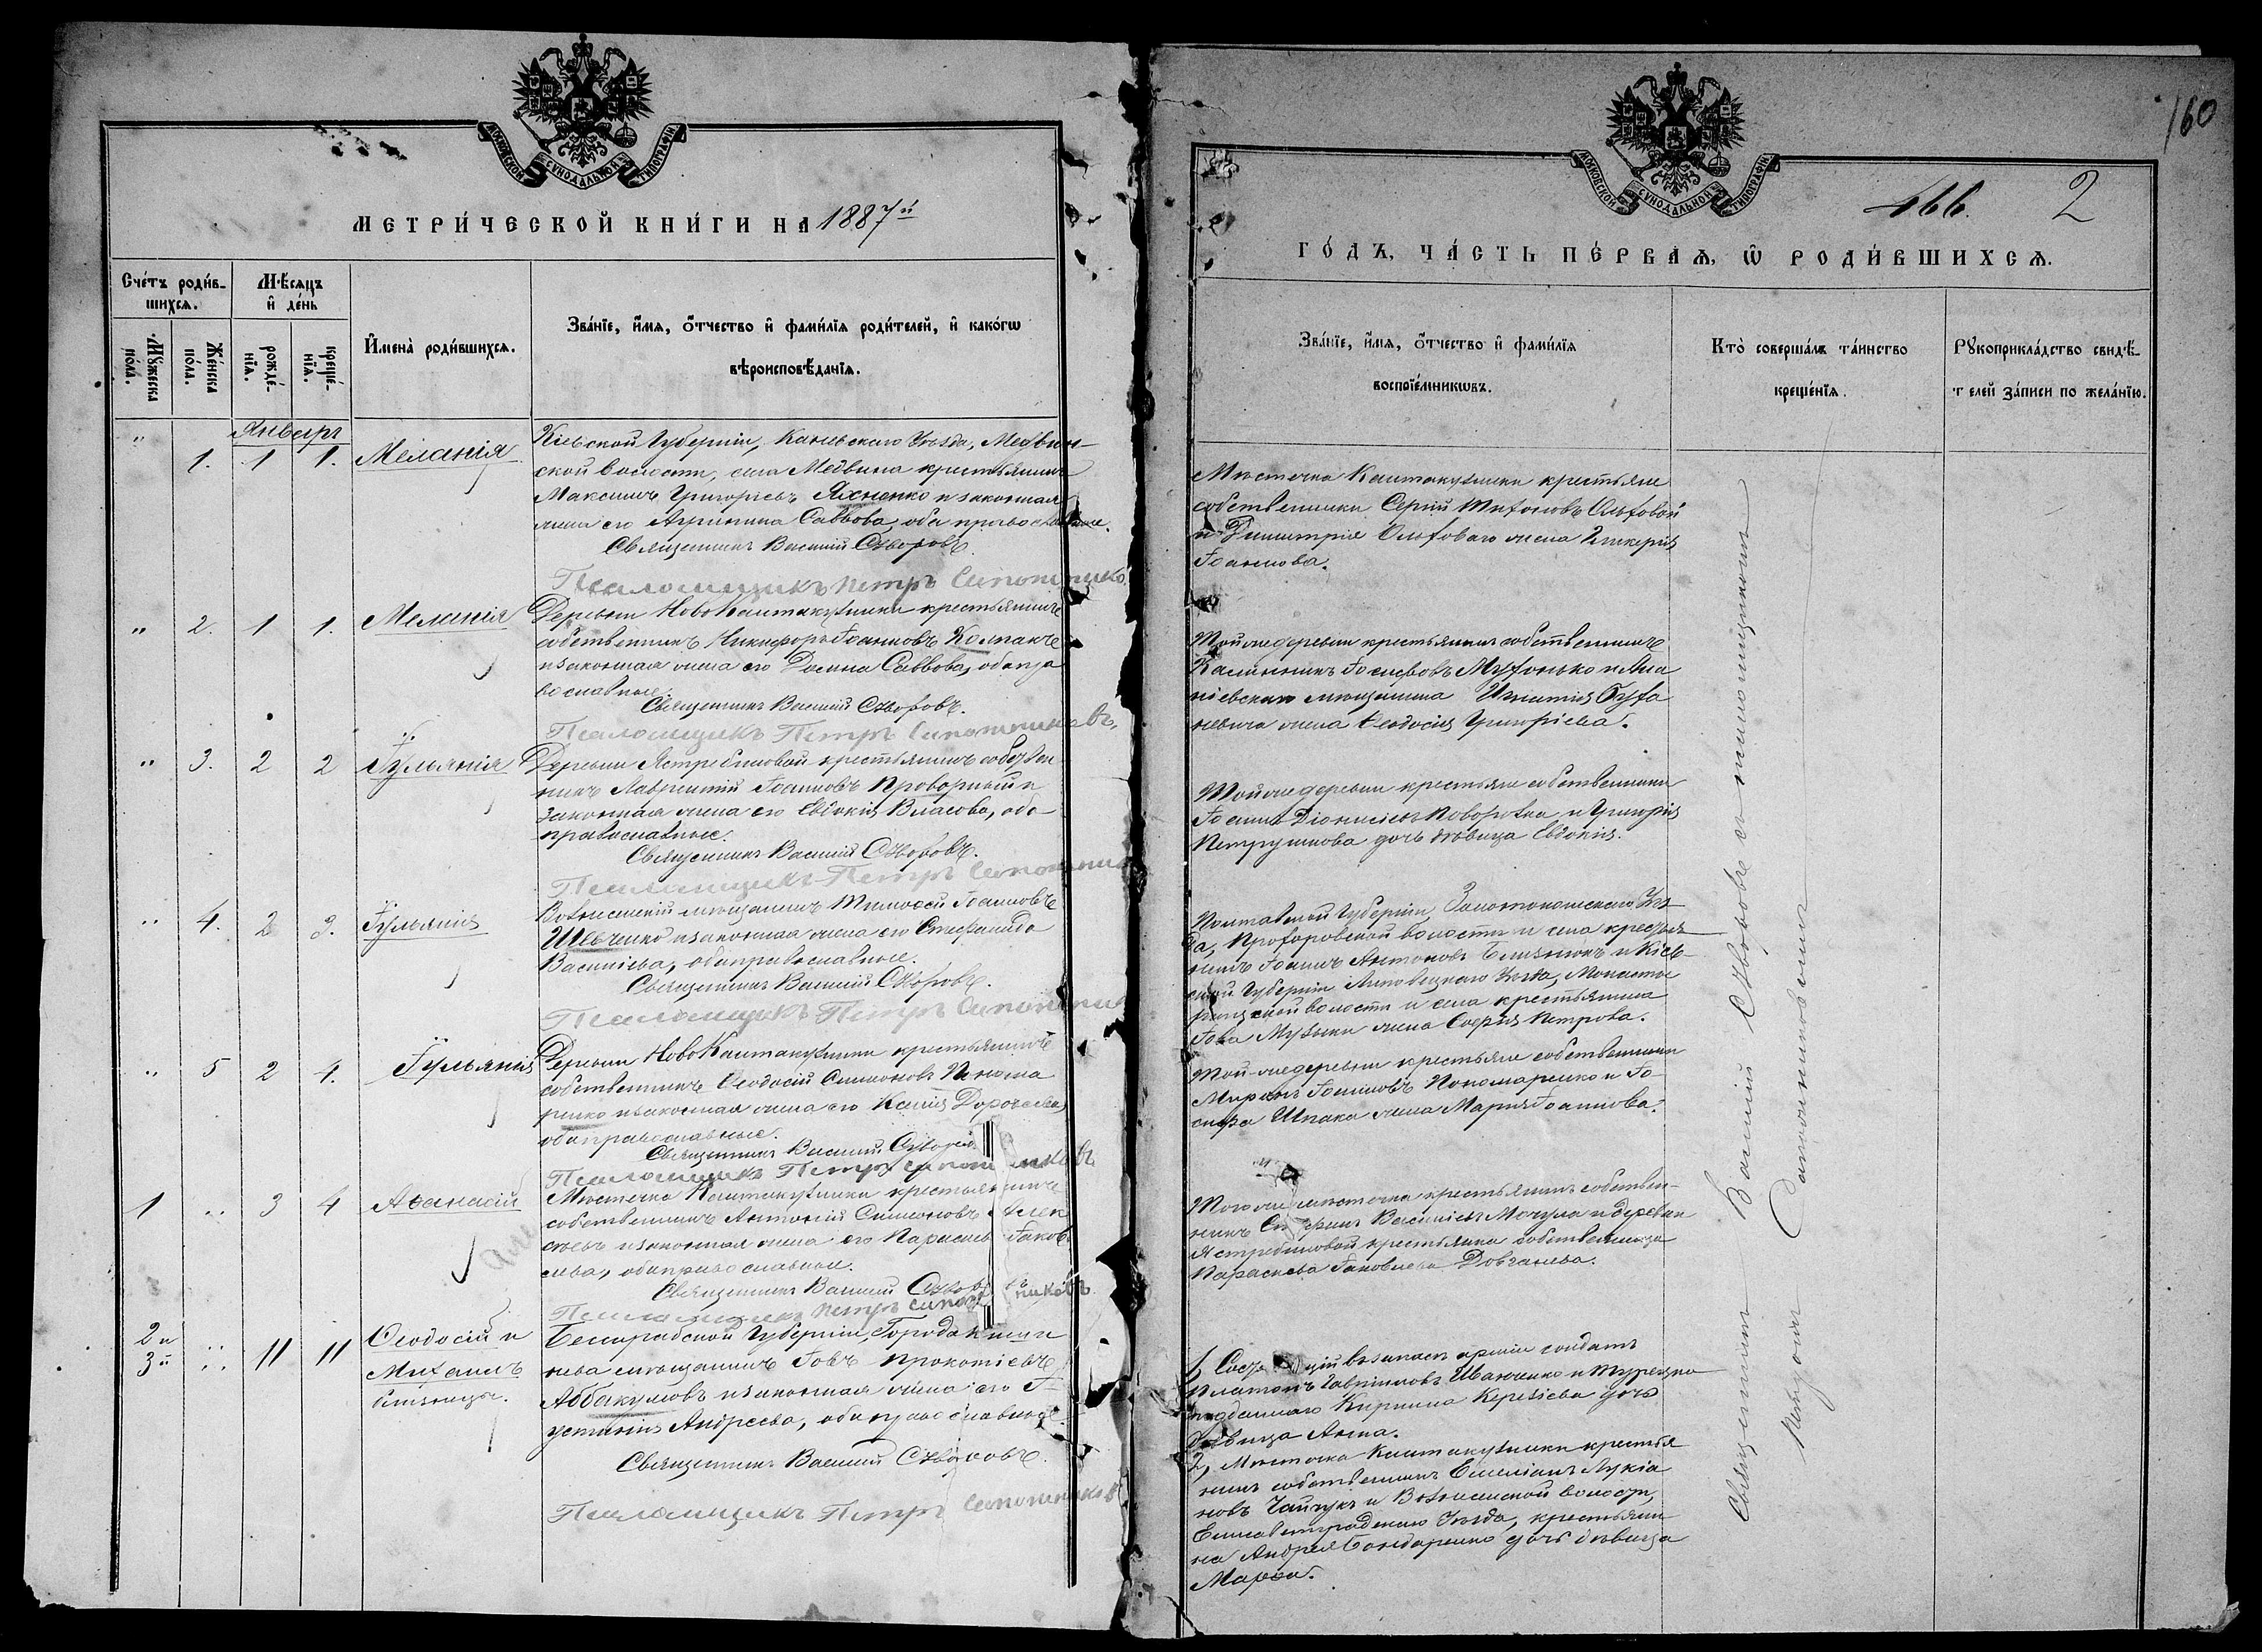 МОСКОВСКОЙ СѴНОДАЛЬНОЙ ТИПОГРАФІИ
МЕТРИ́ЧЕСКОЙ КНИ́ГИ НА 1887й
Сче́тъ роди́в-
шихсѧ.
Мѣ́сѧцъ
и҆ де́нь
Мꙋ́жеска
по́ла.
Же́нска
по́ла.
рожде́-
нїѧ.
креще́-
нїѧ.
И҆мена̀ роди́вшихсѧ.
Зва́нїе, и҆́мѧ, ѻ҆́тчество и҆ фами́лїѧ роди́телей, и҆ како́гѡ
вѣроисповѣ́данїѧ.
Январь
" 1. 1 1. Меланія
Кіевской Губерніи, Каневскаго Уѣзда, Медвин-
ской волости, села Медвина крестьянинъ
Максимъ Григорьевъ Яхненко и законная
жена его Агрипина Саввова, оба православные.
Священникъ Василій Скворовъ.
Псаломщикъ Петръ
" 2. 1 1. Меланія
Деревни НовоКантакузинки крестьянинъ
собственникъ Никифоръ Іоанновъ Колпакъ
и законная жена его Домна Саввова, оба пра
вославные.
Священникъ Василій Скворовъ.
Псаломщикъ Петръ
" 3. 2 2 Іульянія
Деревни Ястребиновой крестьянинъ собствен
никъ Лаврентій Іоанновъ Проворный и
законная жена его Евдокія Власова, оба
православные.
Священникъ Василій Скворовъ.
Псаломщикъ Петръ
" 4. 2 3. Іульянія
Вознесенскій мѣщанинъ Тимоѳей Іоанновъ
Шевченко и законная жена его Стефанида
Василіева, оба православные.
Священникъ Василій Скворовъ.
Псаломщикъ Петръ
" 5 2 4. Іульянія
Деревни НовоКантакузинки крестьянинъ
собственникъ Ѳеодосій Симеоновъ Понома
ренко и законная жена его Ксенія Дороѳеева
оба православные.
Священникъ Василій
Псаломщикъ Петръ
1 " 3 4 Аѳанасій
Мѣстечка Кантакузинки крестьянинъ
собственникъ Антоній Симеоновъ Алек
сѣевъ и законная жена его Параскева Іаков
лева, оба православные.
Священникъ Василій
Псаломщикъ Петръ
2 и
3й " 11 11 Ѳеодосій и
Михаилъ
близнецы.
Бессарабской Губерніи, Города Киши
нева мѣщанинъ Іовъ Прокопіевъ
Аввакумовъ и законная жена его І
устинія Андреева, оба православные.
Священникъ Василій Скворовъ.
Псаломщикъ Петръ
160
МОСКОВСКОЙ СѴНОДАЛЬНОЙ ТИПОГРАФІИ
466. 2
ГО́ДЪ, ЧА́СТЬ ПЕ́РВАѦ, Ѡ҆ РОДИ́ВШИХСѦ.
Зва́нїе, и҆́мѧ, ѻ҆́тчество и҆ фами́лїѧ
воспрїе́мникѡвъ.
Кто̀ соверша́лъ та́инство
креще́нїѧ.
Рꙋкоприкла́дство свидѣ́-
телей за́писи по жела́нїю.
Мѣстечка Кантакузинки крестьяне
собственники Сергій Титовъ Ольховой
и Димитрія Ольховаго жена Гликерія
Іоаннова.
Той же деревни крестьянинъ собственникъ
жена Ѳеодосія Григоріева.
Той же деревни крестьяне собственники
Іоаннъ Діонисіевъ и Григорія
Петрушкова дочь дѣвица Евдокія.
Полтавской Губерніи, Золотоношскаго Уѣз-
да, Прохоровской волости и села крестья
нинъ Іоаннъ Антоновъ Близнюкъ и Кіев-
ской Губерніи Липовецкаго Уѣзда, Монасты
рищской волости и села крестьянина
Іова Музыки жена Софія Петрова.
Той же деревни крестьяне собственники
Миронъ Іоанновъ Пономаренко и Іо-
сифа Шпака жена Марія Іоаннова.
Того же мѣстечка крестьянинъ собствен-
никъ Василіевъ Мочула и деревни
Ястребиновой крестьянка собственница
Параскева Іаковлева Довганева.
1, въ запасѣ арміи солдатъ
Платонъ Гавріиловъ Иванченко и Турецко
подданнаго Кирилла дочь
дѣвица Анна.
2, Мѣстечка Кантакузинки крестья
нинъ собственникъ Емеліанъ Лукіа
новъ Чайчукъ и Вознесенской волости,
Елисаветградскаго Уѣзда, крестьяни
на Андрея Бондаренко дочь дѣвица
Марѳа.
Священникъ Василій Скворовъ съ псаломщикомъ
Петромъ Сапожниковымъ